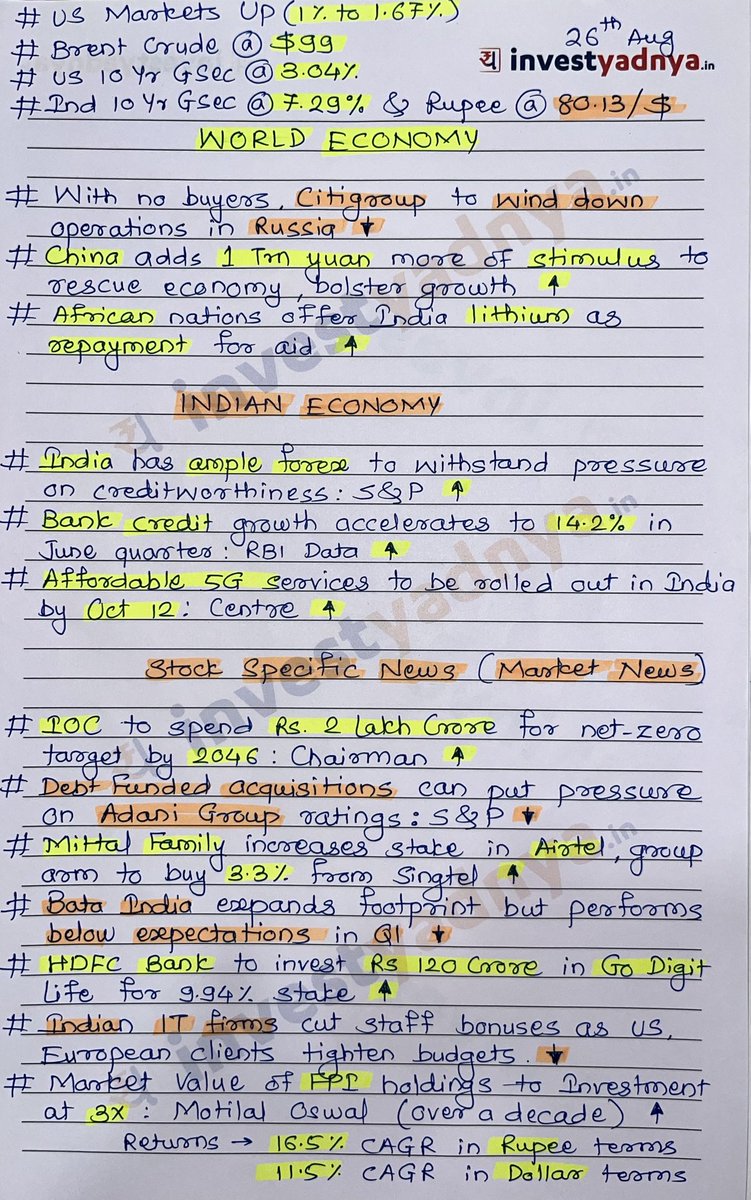 # US Markets Up (1% to 1.67%)
26th Aug
# Brent Crude @ $99
य investyadnya.in
# US 10 Yr GSec @ 3.04%
# Ind 10 Yr GSec @ 7.29% & Rupee @ 80.13/$
WORLD ECONOMY
# With no buyers, Citigroup to wind down
operations in Russia ↓
# China adds 1 Trn yuan more of stimulus to
rescue economy, bolster growth ↑
# African nations offer India lithium as
repayment for aid ↑
INDIAN ECONOMY
# India has ample forex to withstand pressure
on creditworthiness: S&P ↑
# Bank credit growth accelerates to 14.2% in
June quarter: RBI Data ↑
# Affordable 5G services to be rolled out in India
by Oct 12: Centre ↑
Stock Specific News (Market News)
# IOC to spend Rs. 2 Lakh Crore for net-zero
target by 2046: Chairman ↑
# Debt Funded acquisitions can put pressure
on Adani Group ratings: S&P ↓
# Mittal Family increases stake in Airtel, group
arm to buy 3.3% from Singtel ↑
# Bata India expands footprint but performs
below expectations in Q1 ↓
# HDFC Bank to invest Rs 120 Crore in Go Digit
Life for 9.94% stake ↑
# Indian IT firms cut staff bonuses as US,
European clients tighten budgets. ↓
# Market Value of FPI holdings to Investment
at 3X: Motilal Oswal (over a decade) ↑
Returns → 16.5% CAGR in Rupee terms
11.5% CAGR in Dollar terms